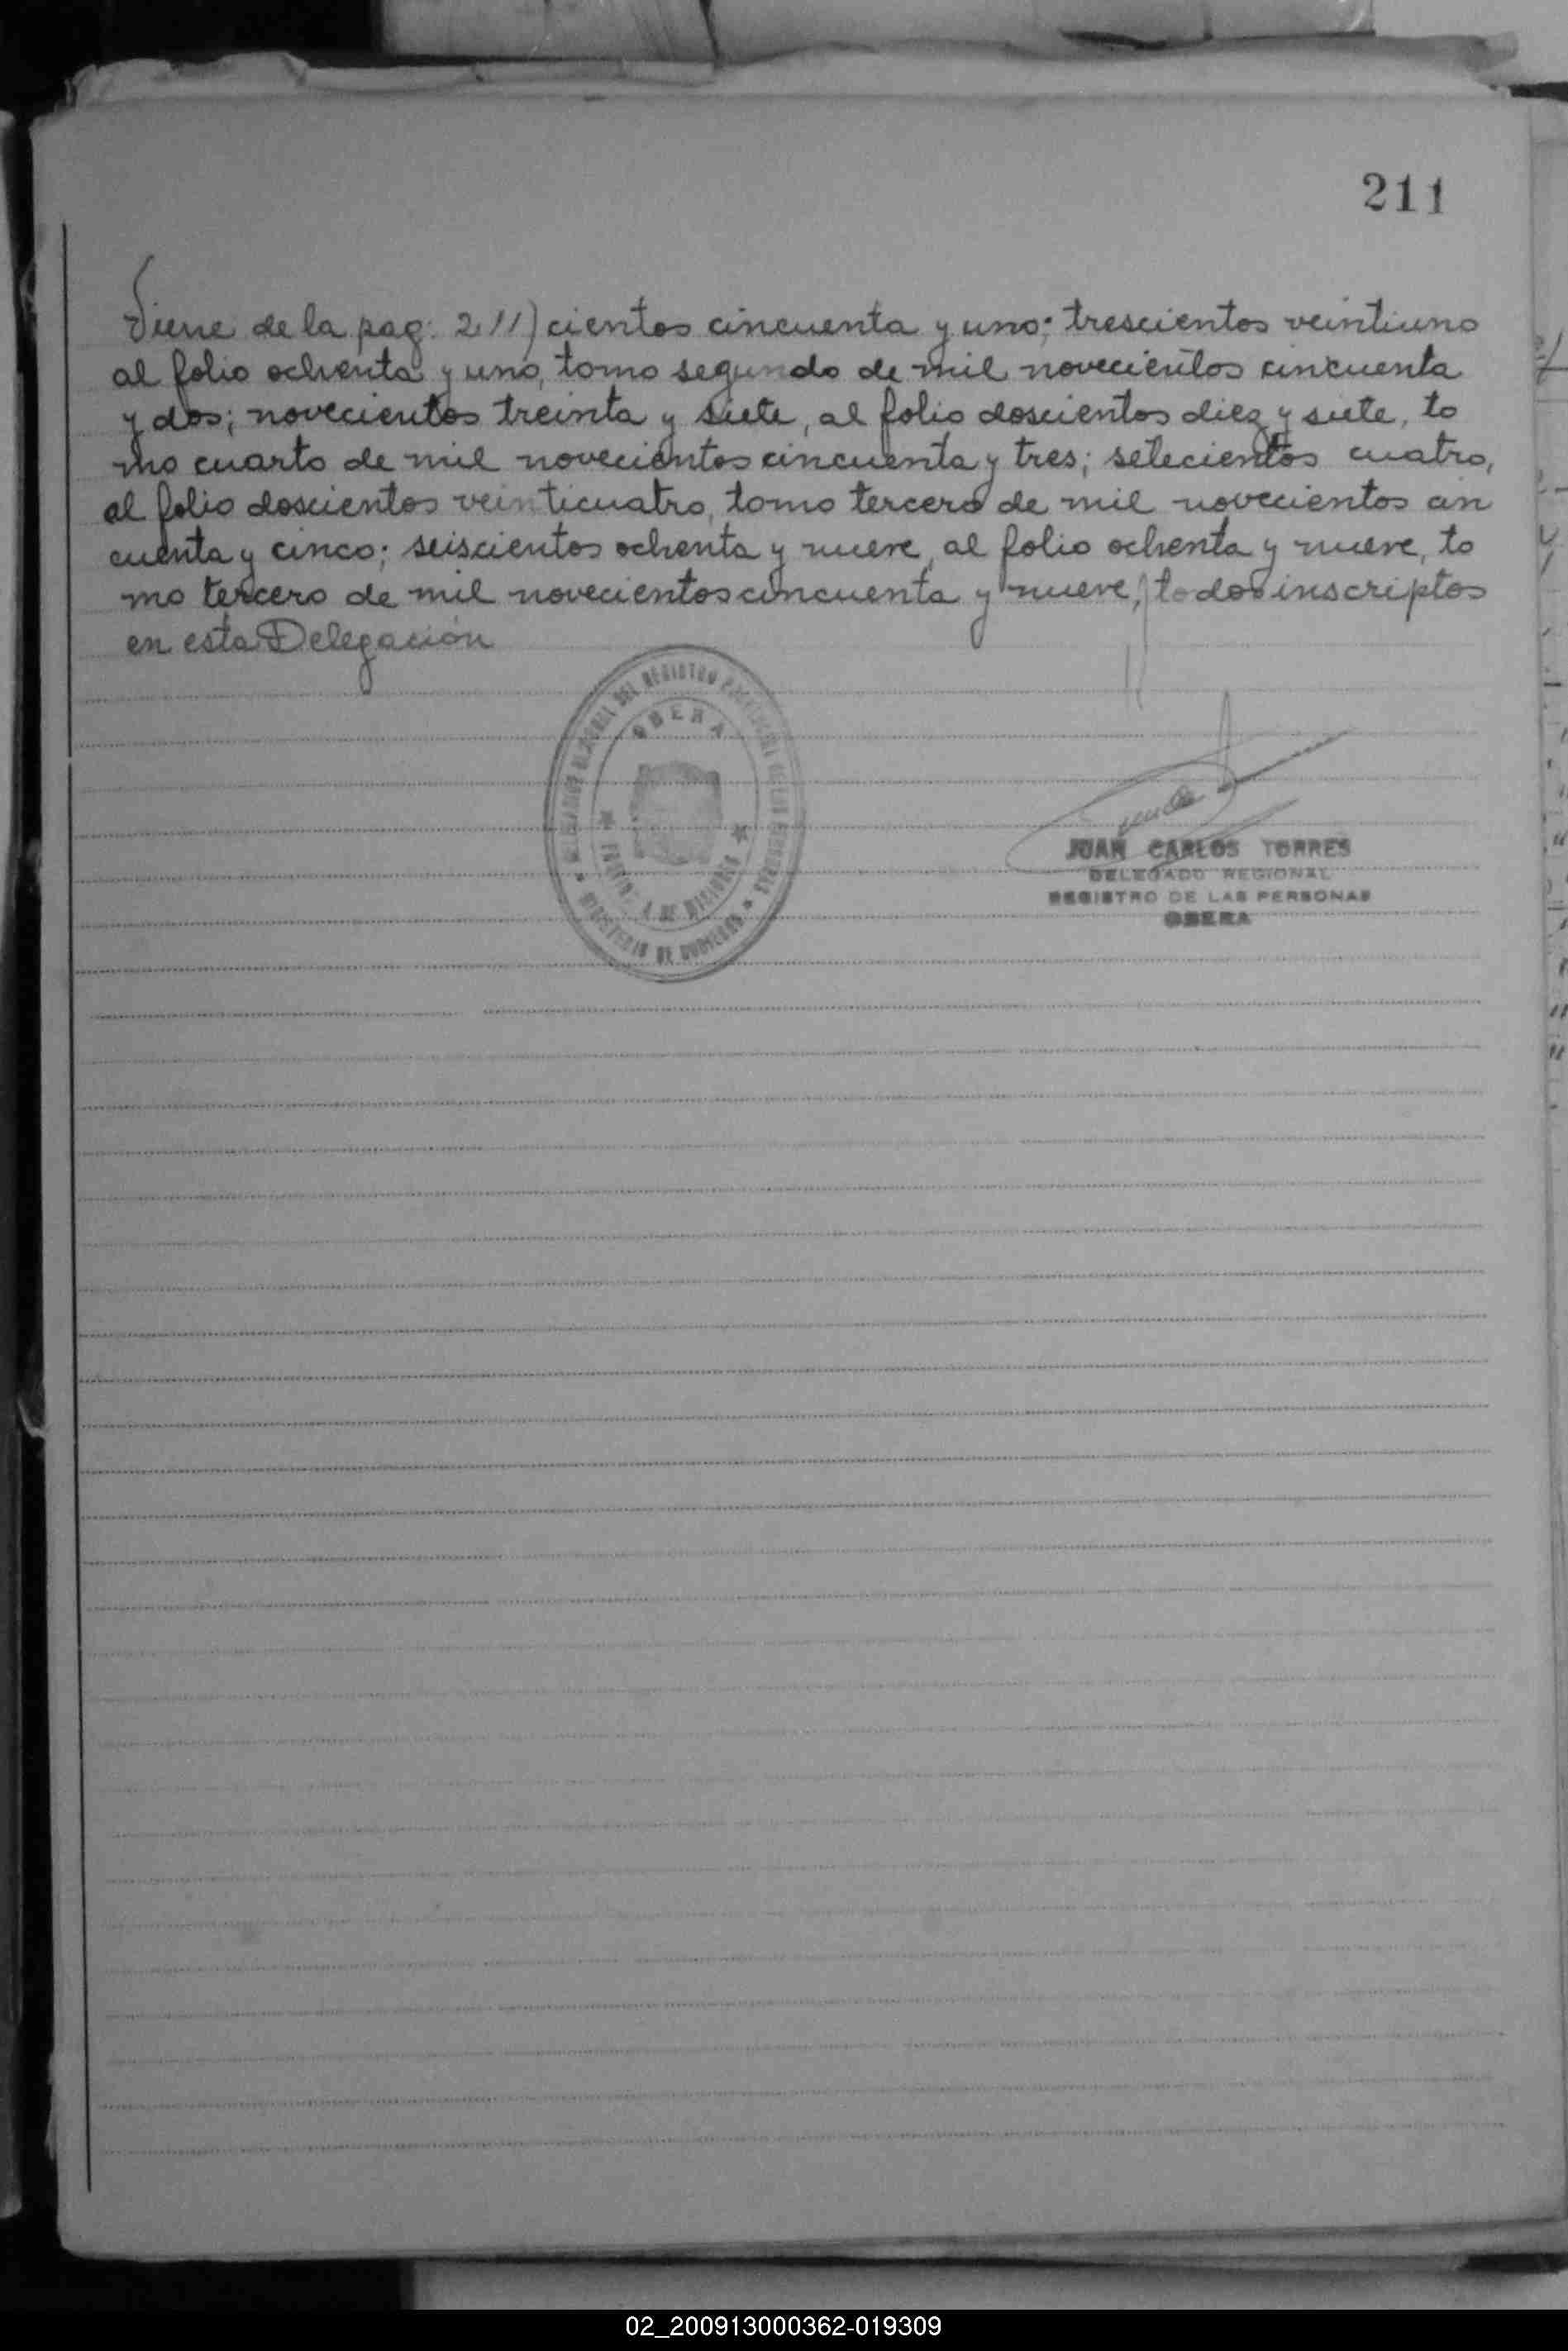 211
Viene de la pag: 211) cientos cincuenta y uno; trescientos veintiuno
al folio ochenta y uno, tomo segundo de mil novecientos cincuenta
y dos; novecientos treinta y siete, al folio doscientos diez y siete, to
mo cuarto de mil novecientos cincuenta y tres; setecientos cuatro,
al folio doscientos veinticuatro, tomo tercero de mil novecientos cin
cuenta y cinco; seiscientos ochenta y nueve, al folio ochenta y nueve, to
mo tercero de mil novecientos cincuenta y nueve, todos inscriptos
en esta Delegación
DEL REGISTRO
OBERA
MINISTERIO DE GOBIERNO
DE MISIONES
JUAN CARLOS TORRES
DELEGADO REGIONAL
REGISTRO DE LAS PERSONAS
OBERA
02_200913000362-019309